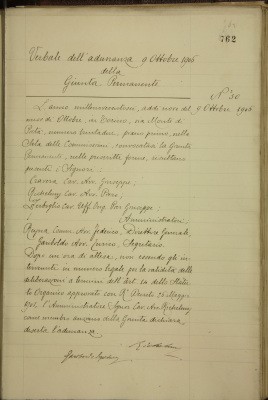 762
Verbale dell'adunanza 9 Ottobre 1906
della
Giunta Permanente
N° 30
L'anno millenovecentosei, addì nove del 9 Ottobre 1906
mese di Ottobre, in Torino, via Monte di
Pietà, numero trentadue, piano primo, nella
Sala delle Commissioni, convocatasi la Giunta
Permanente, nelle prescritte forme, risultano
presenti i Signori:
Cav. Avv. Giuseppe;
Cav. Avv.
Cav. Uff. Ing. Giuseppe;
Amministratori
Comm. Avv. Federico, Direttore Generale,
Avv. Segretario.
Dopo un'ora di attesa, non essendo gli in-
tervenuti in numero legale per la validità delle
deliberazioni a termini dell'Art. dello Statu-
to Organico approvato con R° Decreto 26 Maggio
l'Amministratore Signor Cav. Avv.
come membro anziano della Giunta dichiara
deserta l'adunanza.